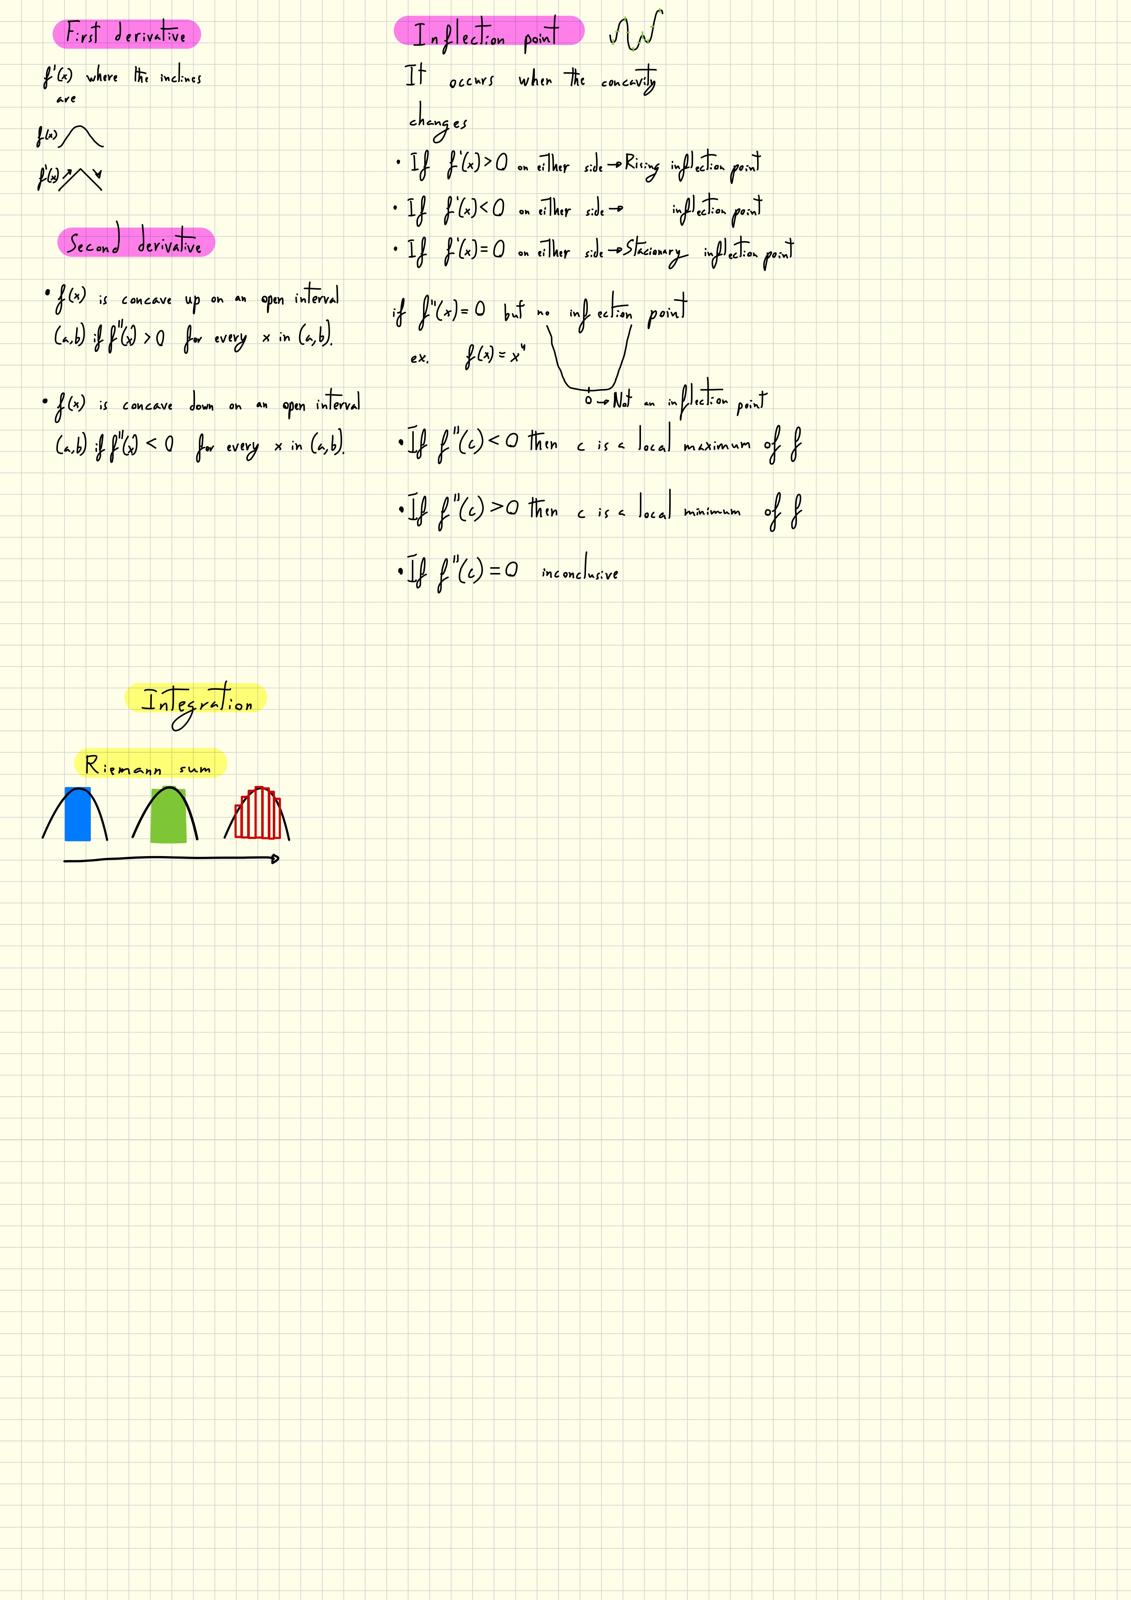 First derivative
f'(x) where the inclines
are
f(x)
f'(x)
Second derivative
• f(x) is concave up on an open interval
(a,b) if f''(x) > 0 for every x in (a,b).
• f(x) is concave down on an open interval
(a,b) if f''(x) < 0 for every x in (a,b).
Inflection point
It occurs when the concavity
changes
• If f'(x) > 0 on either side → Rising inflection point
• If f'(x) < 0 on either side → inflection point
• If f'(x) = 0 on either side → Stacionary inflection point
if f''(x) = 0 but no inflection point
ex. f(x) = x⁴
0 → Not an inflection point
• If f''(c) < 0 then c is a local maximum of f
• If f''(c) > 0 then c is a local minimum of f
• If f''(c) = 0 inconclusive
Integration
Riemann sum